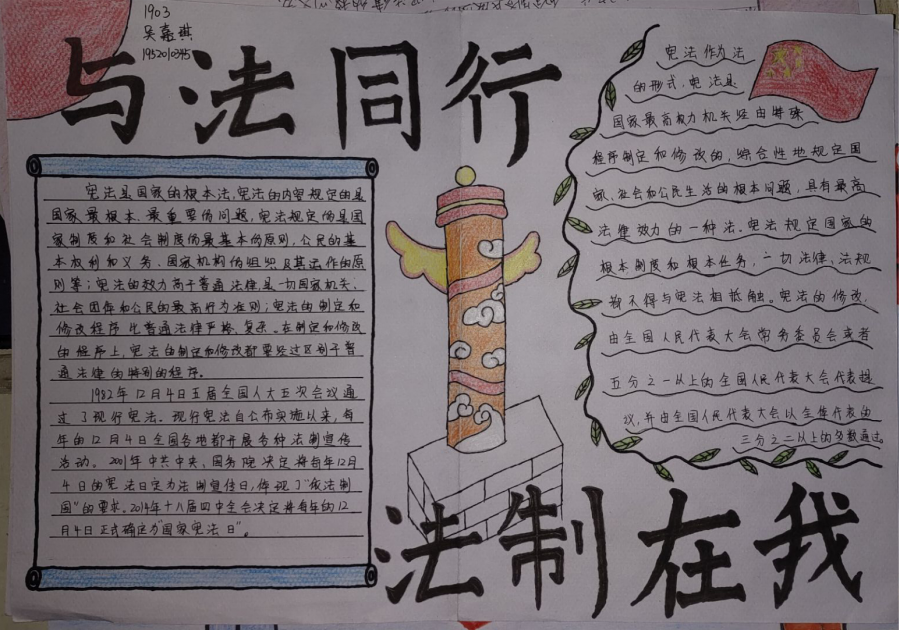 1903
吴嘉琪
1932010345
与法同行
宪法是国家的根本法,宪法的内容规定的是
国家最根本、最重要的问题,宪法规定的是国
家制度和社会制度的最基本的原则,公民的基
本权利和义务、国家机构的组织及其运作的原
则等;宪法的效力高于普通法律,是一切国家机关、
社会团体和公民的最高行为准则;宪法的制定和
修改程序比普通法律严格、复杂。在制定和修改
的程序上,宪法的制定和修改都要经过区别于普
通法律的特别的程序。
1982年12月4日五届全国人大五次会议通
过了现行宪法。现行宪法自公布实施以来,每
年的12月4日全国各地都开展各种法制宣传
活动。2001年中共中央、国务院决定将每年12月
4日的宪法日定为法制宣传日,体现了"依法制
国"的要求。2014年十八届四中全会决定将每年的12
月4日正式确定为"国家宪法日"。
宪法作为法
的形式,宪法是
国家最高权力机关经由特殊
程序制定和修改的,综合性地规定国
家、社会和公民生活的根本问题,具有最高
法律效力的一种法。宪法规定国家的
根本制度和根本任务,一切法律、法规
都不得与宪法相抵触。宪法的修改,
由全国人民代表大会常务委员会或者
五分之一以上的全国人民代表大会代表提
议,并由全国人民代表大会以全体代表的
三分之二以上的多数通过。
法制在我